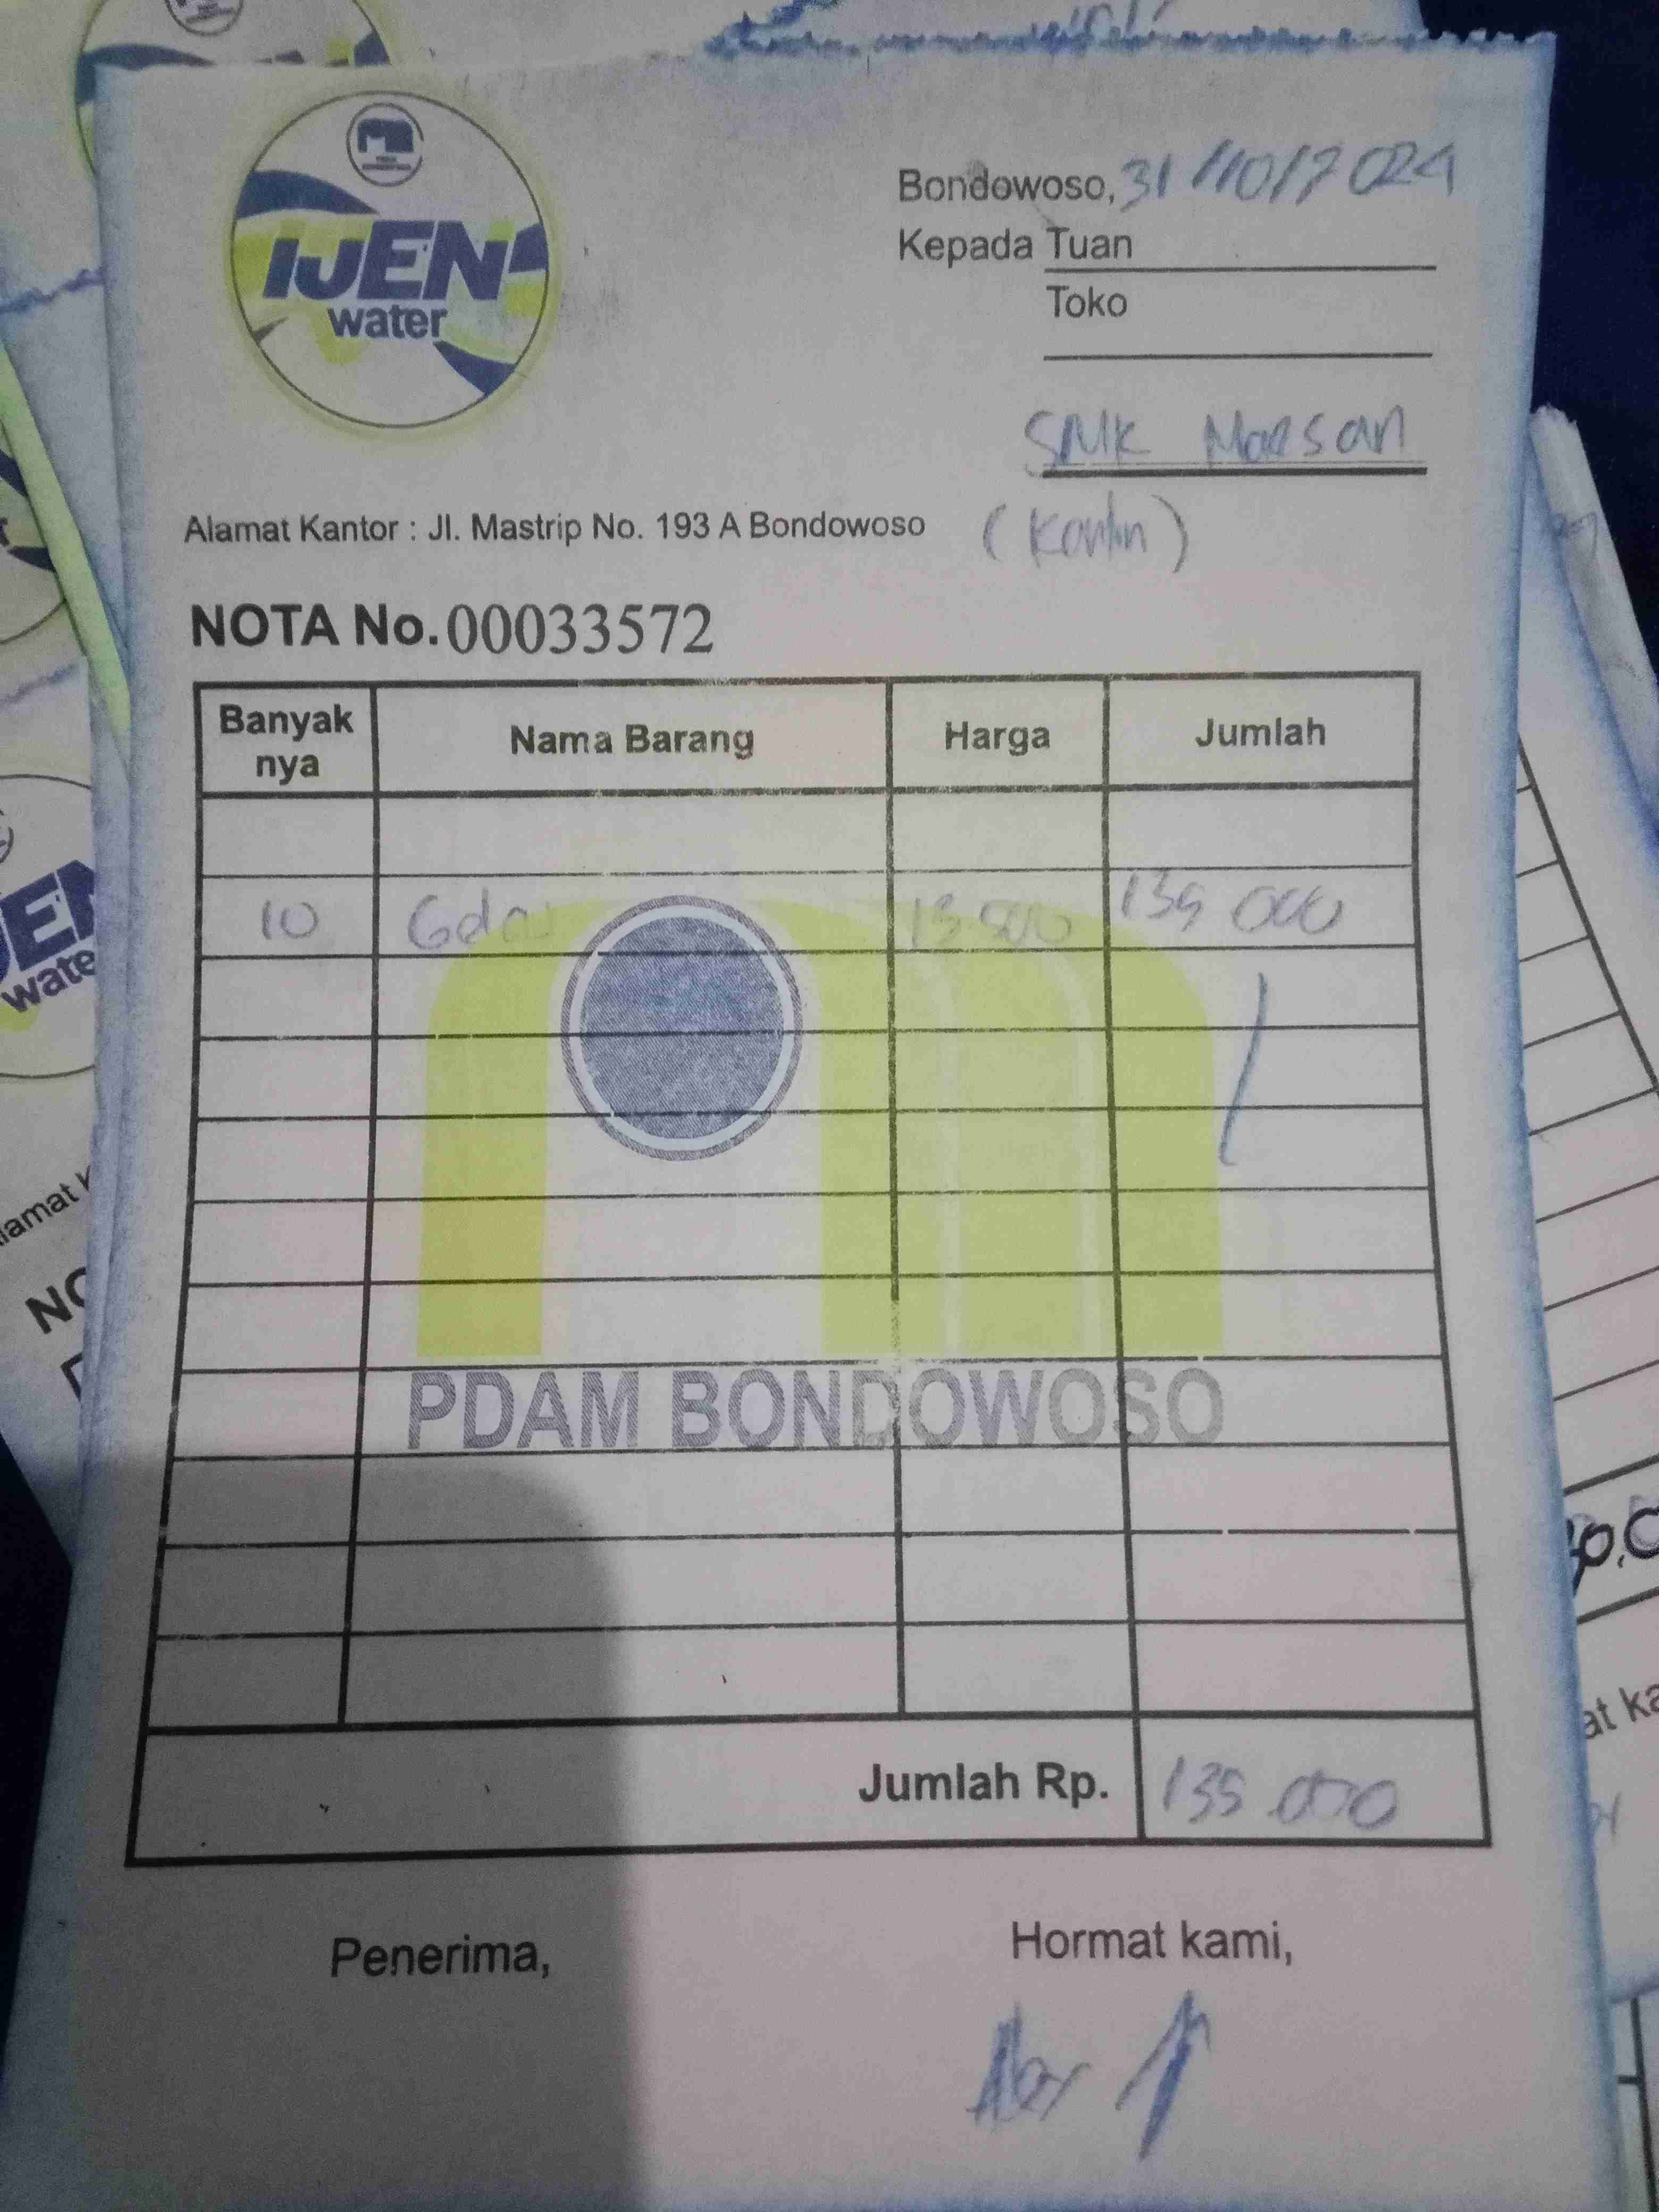 IJEN
water
Bondowoso, 31/10/2024
Kepada Tuan
Toko
SMK Maesan
(Kantin)
Alamat Kantor : Jl. Mastrip No. 193 A Bondowoso
NOTA No. 00033572
Banyak nya Nama Barang Harga Jumlah
10 13 500 135 000
PDAM BONDOWOSO
Jumlah Rp. 135 000
Penerima, Hormat kami,